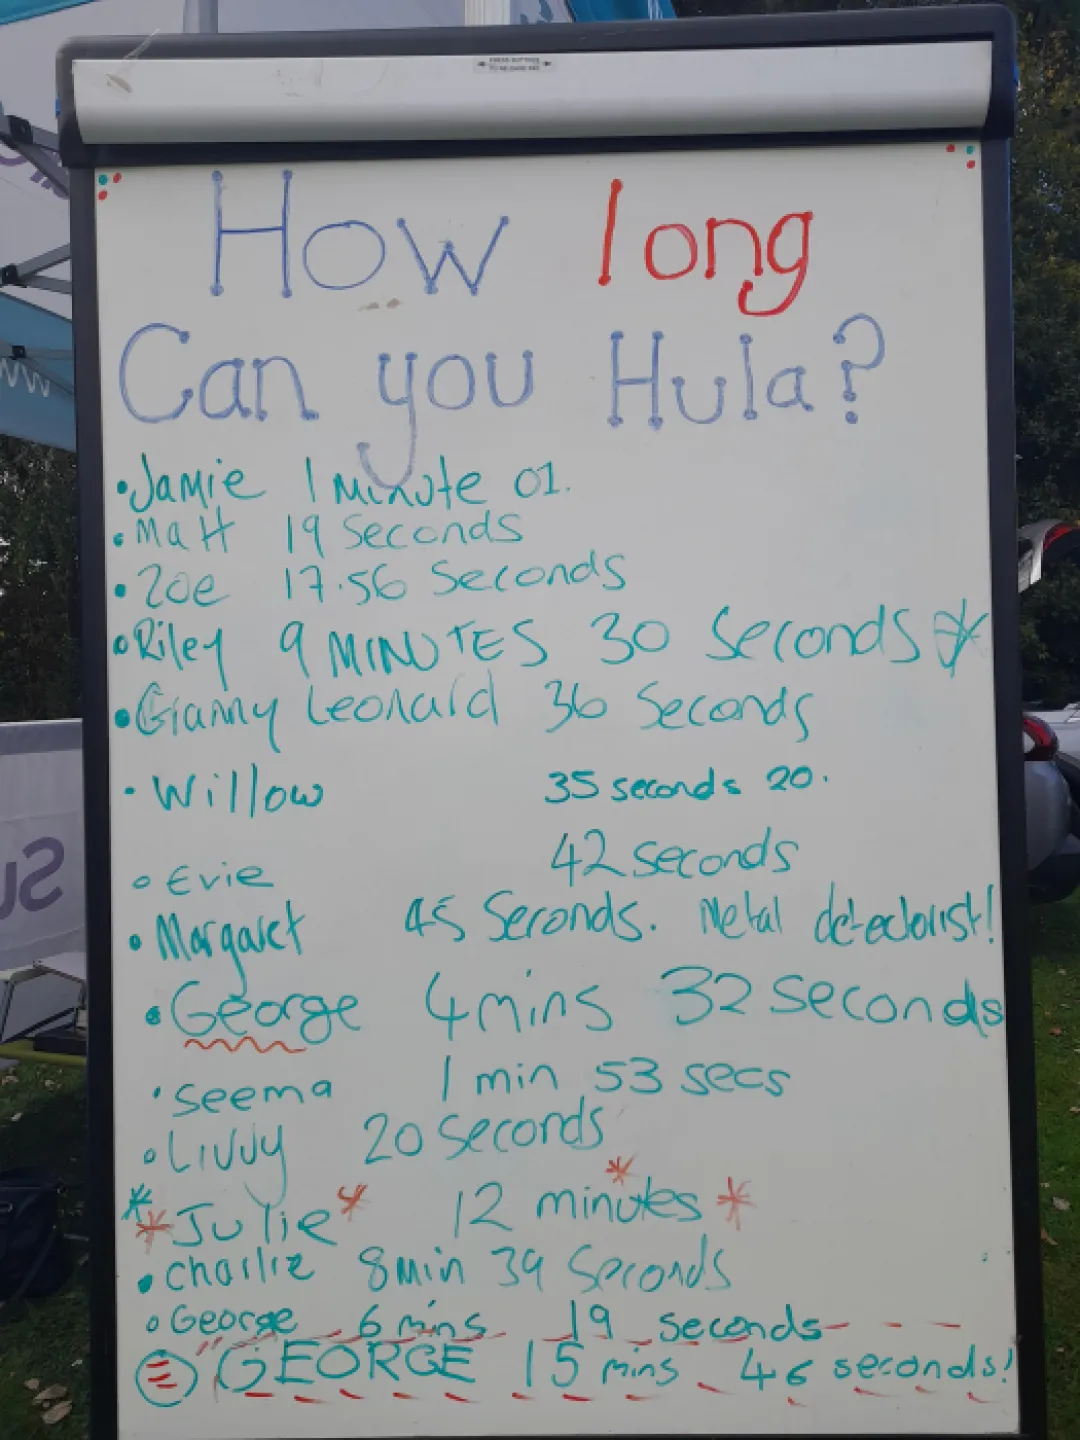 How long
Can you Hula?
•Jamie 1 Minute 01.
•Matt 19 Seconds
•Zoe 17.56 Seconds
•Riley 9 MINUTES 30 Seconds *
•Granny Leonard 36 Seconds
•Willow 35 seconds 20.
•Evie 42 seconds
•Margaret 45 Seconds. Metal detectorist!
•George 4 mins 32 seconds
•Seema 1 min 53 secs
•Livvy 20 seconds
**Julie* 12 minutes**
•Charlie 8 min 39 Seconds
•George 6 mins 19 seconds
GEORGE 15 mins 46 seconds!